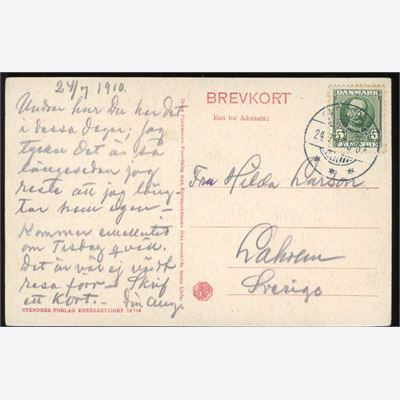 24/7 1910.
Undrar hur Du har det
i dessa dagar; jag
tycker det är så
längesedan jag
reste att jag läng-
tar hem igen.
Kommer emellertid
om Tisdag qväll.
Det är väl ej värdt
resa förr. Skrif
ett Kort. – Din
STENDERS FORLAG ENEBERETTIGET
BREVKORT
Kun for Adressen:
DANMARK
5 5
24.7
Fru Hilda Larson
Laholm
Sverige